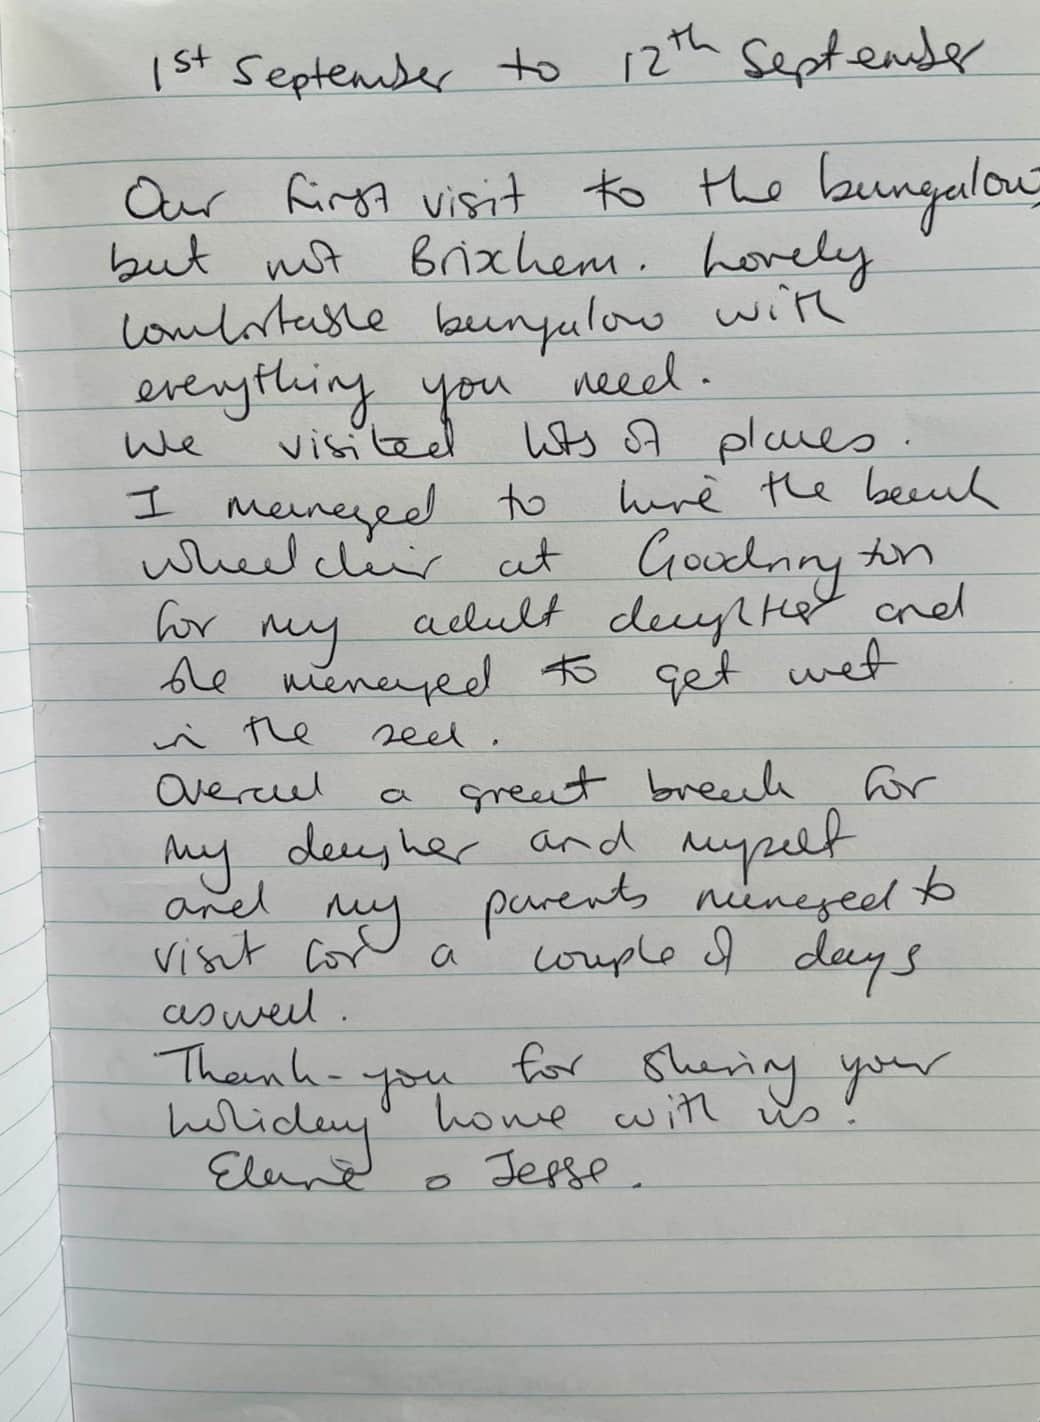 1st September to 12th September
Our first visit to the bungalow,
but not Brixham. Lovely
comfortable bungalow with
everything you need.
We visited lots of places.
I managed to hire the beach
wheelchair at Goodrington
for my adult daughter and
she managed to get wet
in the sea.
Overall a great break for
my daugher and myself
and my parents managed to
visit for a couple of days
aswell.
Thank-you for sharing your
holiday home with us.
Elaine o Jesse.